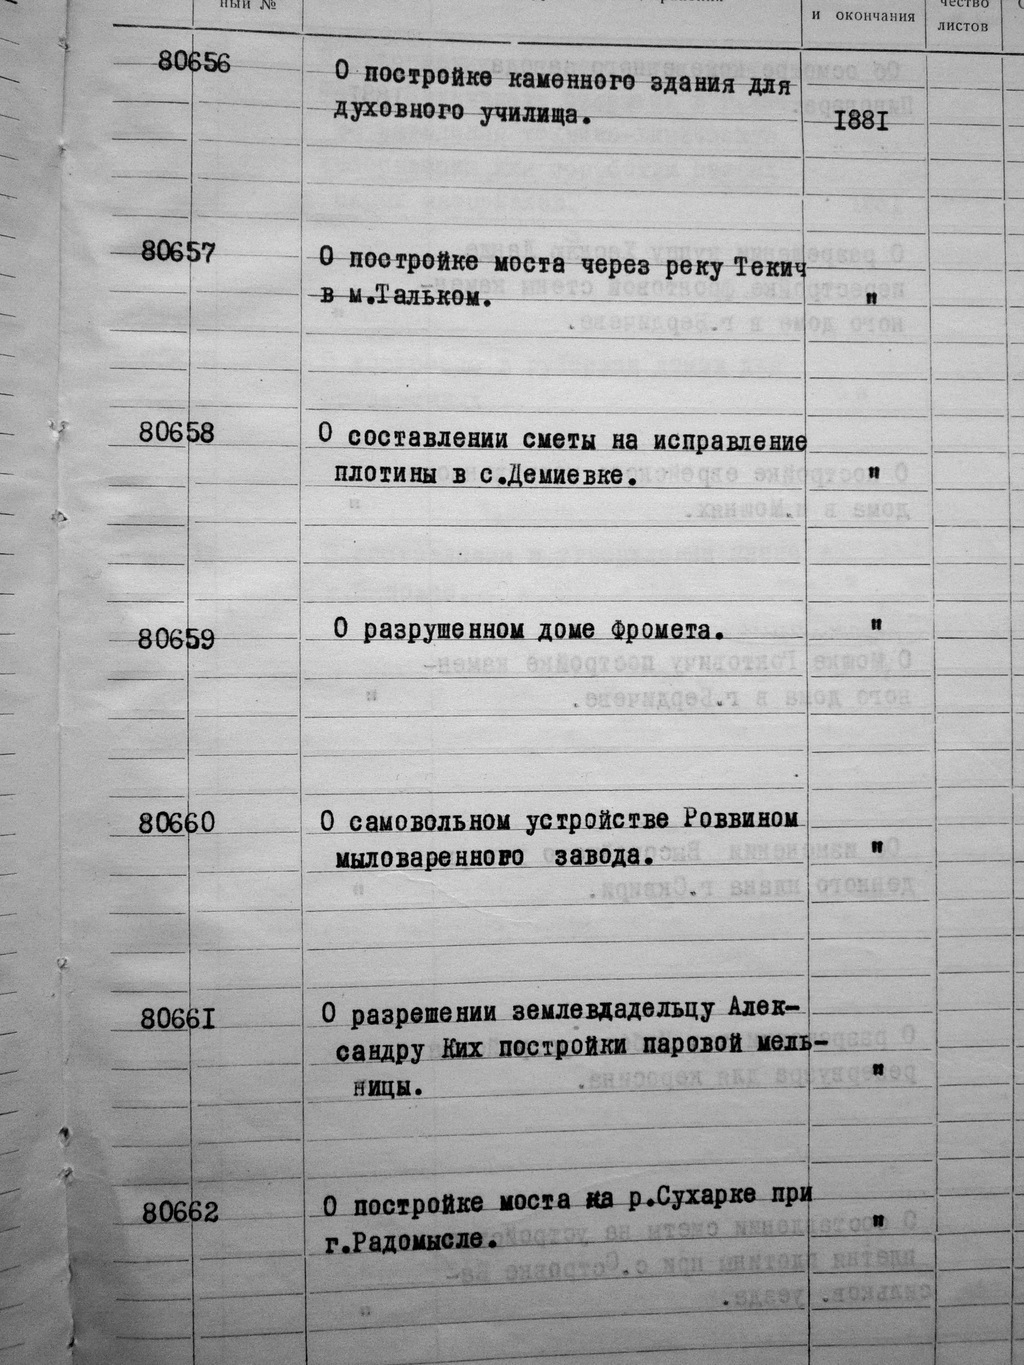 ный №
и окончания
чество
листов
80656
О постройке каменного здания для
духовного училища.
I88I
80657
О постройке моста через реку Текич
в м.Тальком.
"
80658
О составлении сметы на исправление
плотины в с.Демиевке.
"
80659
О разрушенном доме Фромета.
"
80660
О самовольном устройстве Роввином
мыловаренного завода.
"
8066I
О разрешении землевдадельцу Алек-
сандру Ких постройки паровой мель-
ницы.
"
80662
О постройке моста на р.Сухарке при
г.Радомысле.
"